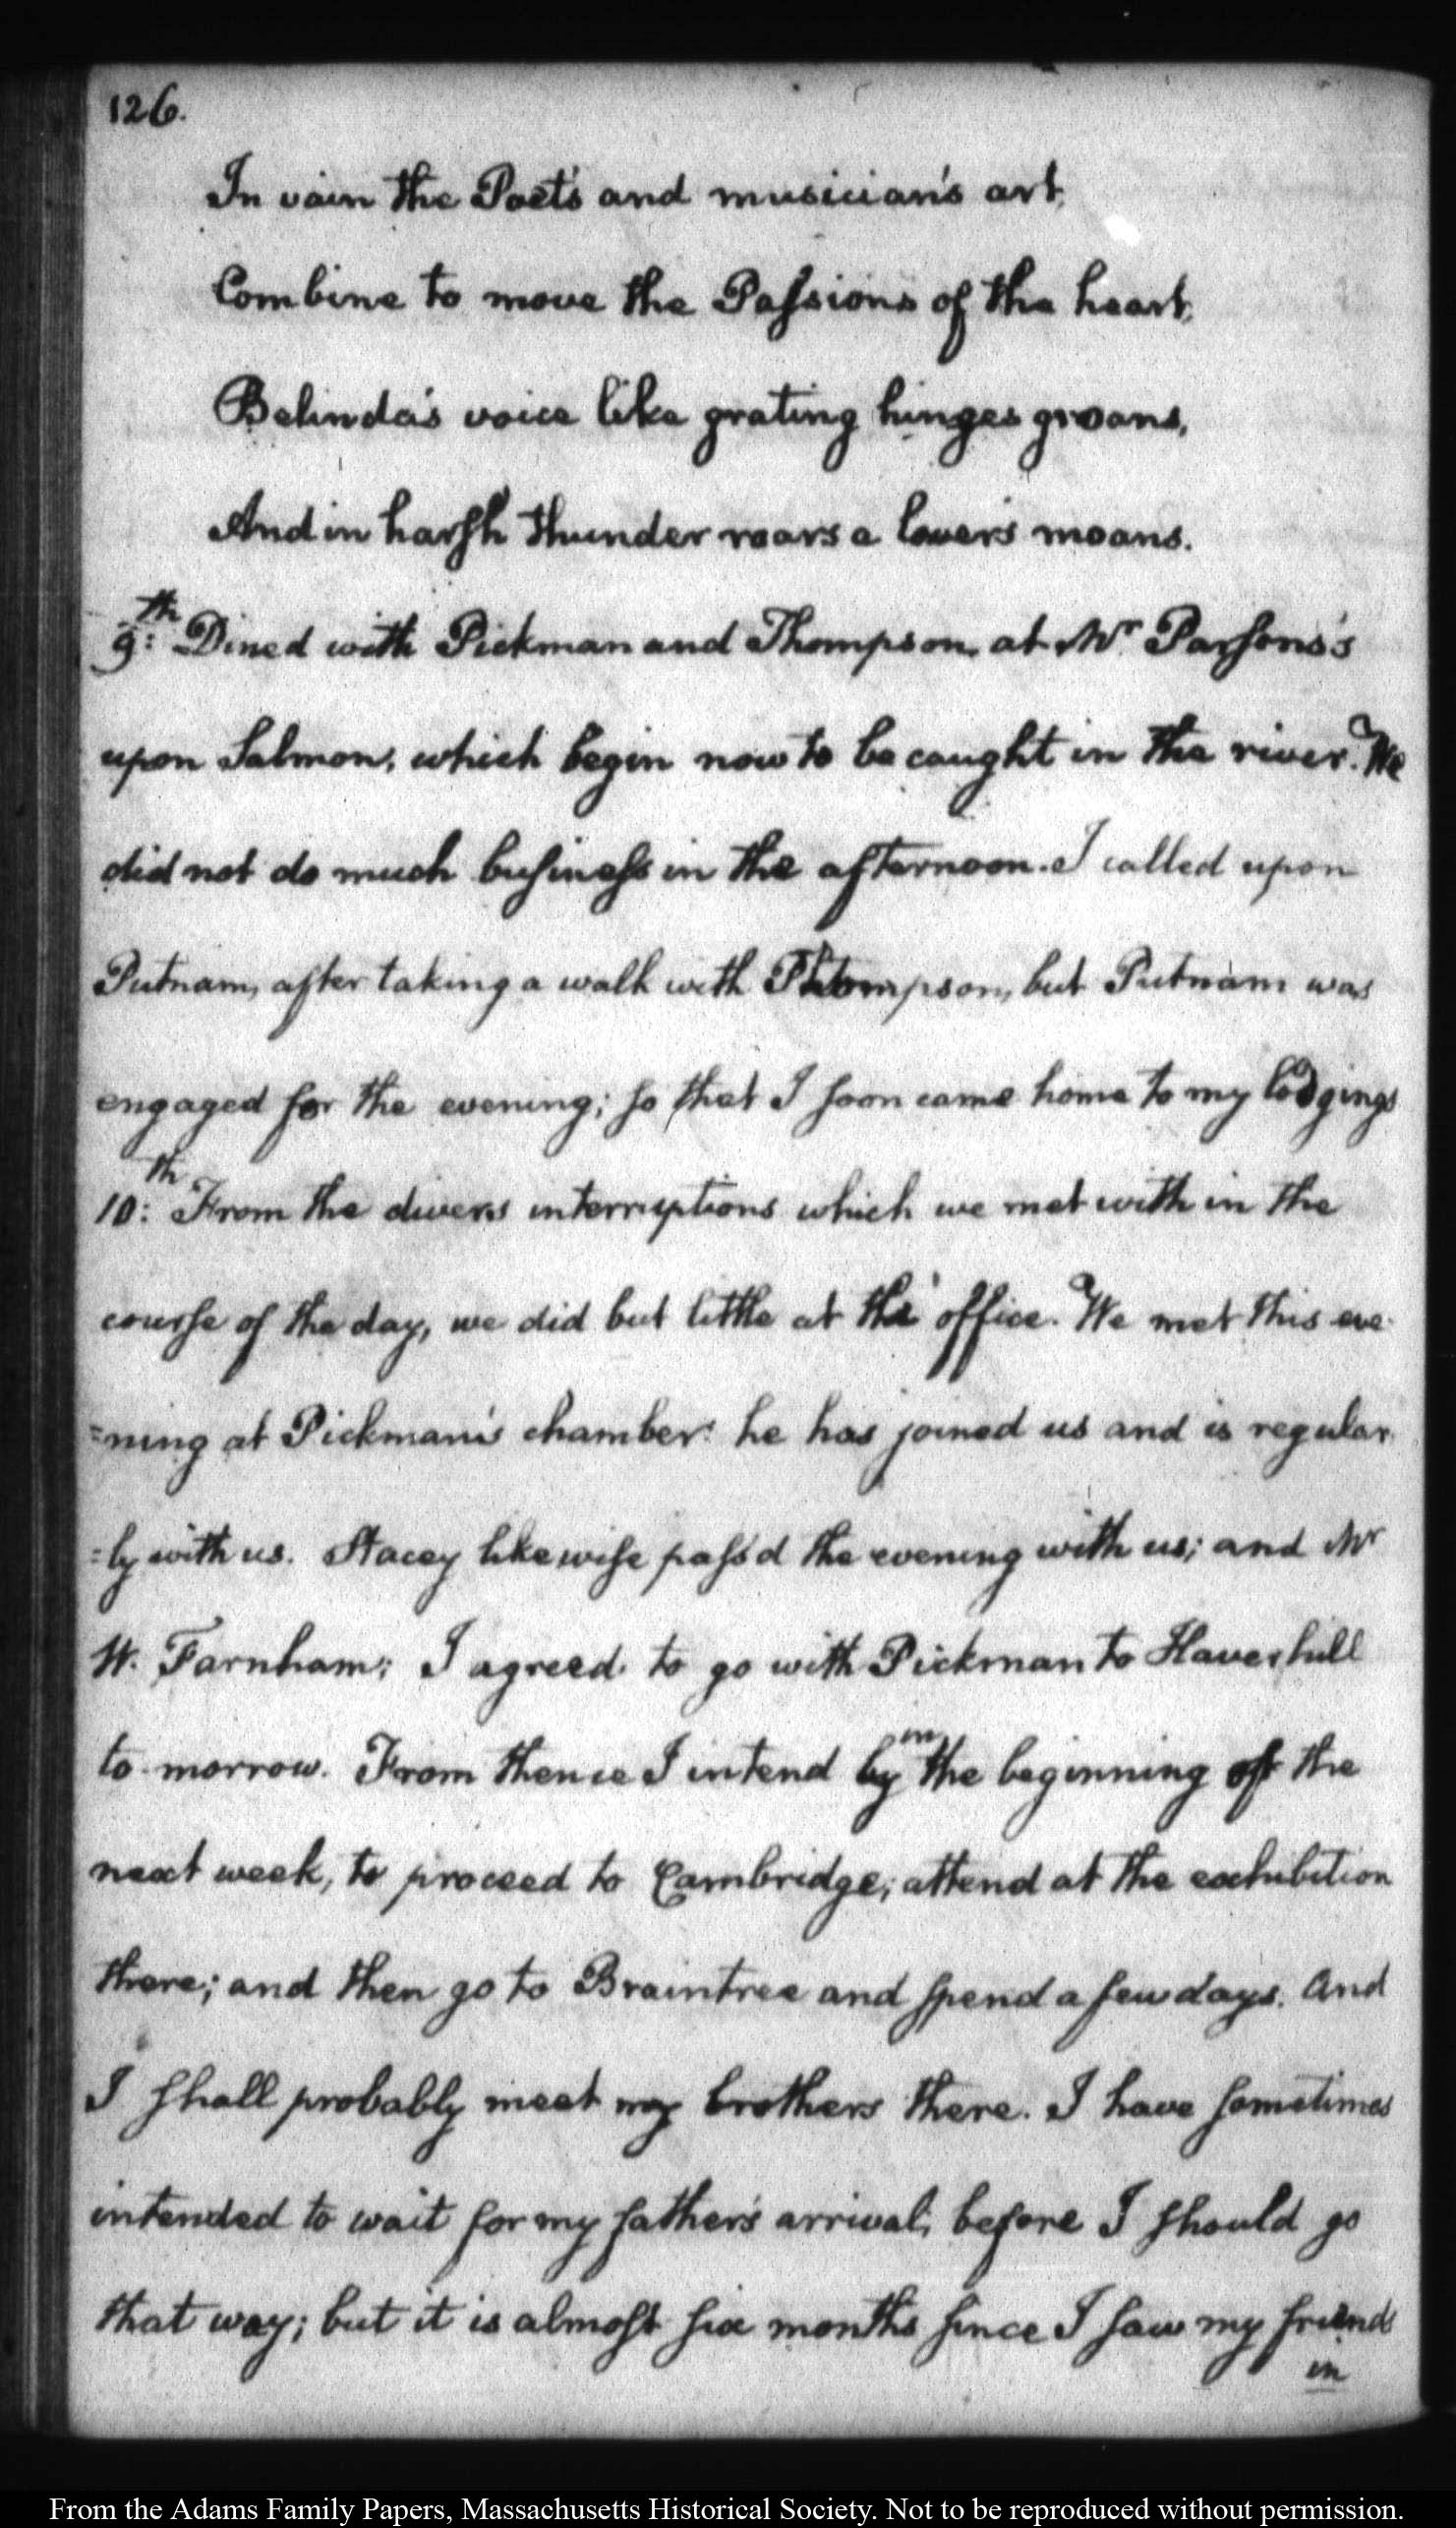 126.
In vain the Poet's and musician's art,
Combine to move the Passions of the heart,
Belinda's voice like grating hinges groans,
And in harsh thunder roars a lover's moans.
9:th Dined with Pickman and Thompson, at Mr Parsons's
upon Salmon, which begin now to be caught in the river. We
did not do much business in the afternoon. I called upon
Putnam, after taking a walk with Thompson, but Putnam was
engaged for the evening; so that I soon came home to my lodgings
10:th From the divers interruptions which we met with in the
course of the day, we did but little at the office. We met this eve-
=ning at Pickman's chamber: he has joined us and is regular
=ly with us. Stacey likewise pass'd the evening with us; and Mr
W. Farnham; I agreed to go with Pickman to Haverhill
to-morrow. From thence I intend by in the beginning of the
next week, to proceed to Cambridge; attend at the exhibition
there; and then go to Braintree and spend a few days. And
I shall probably meet my brothers there. I have sometimes
intended to wait for my father's arrival, before I should go
that way; but it is almost six months since I saw my friends
in
From the Adams Family Papers, Massachusetts Historical Society. Not to be reproduced without permission.